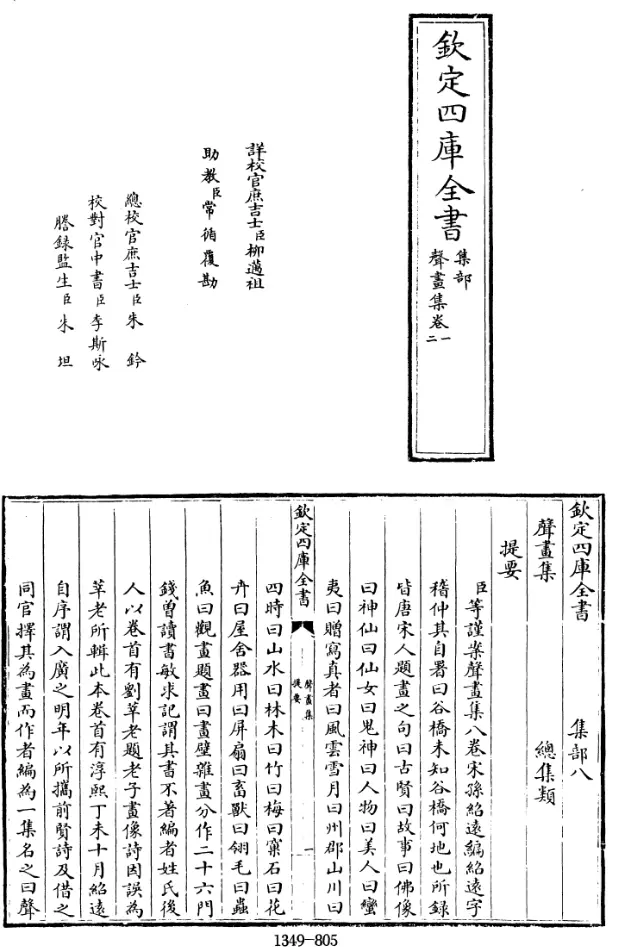 欽定四庫全書
集部
聲畫集卷一
二
詳校官庶吉士臣柳邁祖
助教臣常循覆勘
總校官庶吉士臣朱鈐
校對官中書臣李斯咏
謄錄監生臣朱坦
欽定四庫全書 集部八
聲畫集 總集類
提要
臣等謹案聲畫集八卷宋孫紹遠編紹遠字
稽仲其自署曰谷橋未知谷橋何地也所錄
皆唐宋人題畫之句曰古賢曰故事曰佛像
曰神仙曰仙女曰鬼神曰人物曰美人曰蠻
夷曰贈寫真者曰風雲雪月曰州郡山川曰
欽定四庫全書
聲畫集
提要
一
四時曰山水曰林木曰竹曰梅曰窠石曰花
卉曰屋舍器用曰屏扇曰畜獸曰翎毛曰蟲
魚曰觀畫題畫曰畫壁雜畫分作二十六門
錢曾讀書敏求記謂其書不著編者姓氏後
人以卷首有劉莘老題老子畫像詩因誤為
莘老所輯此本卷首有淳熙丁未十月紹遠
自序謂入廣之明年以所攜前賢詩及借之
同官擇其為畫而作者編為一集名之曰聲
1349-805